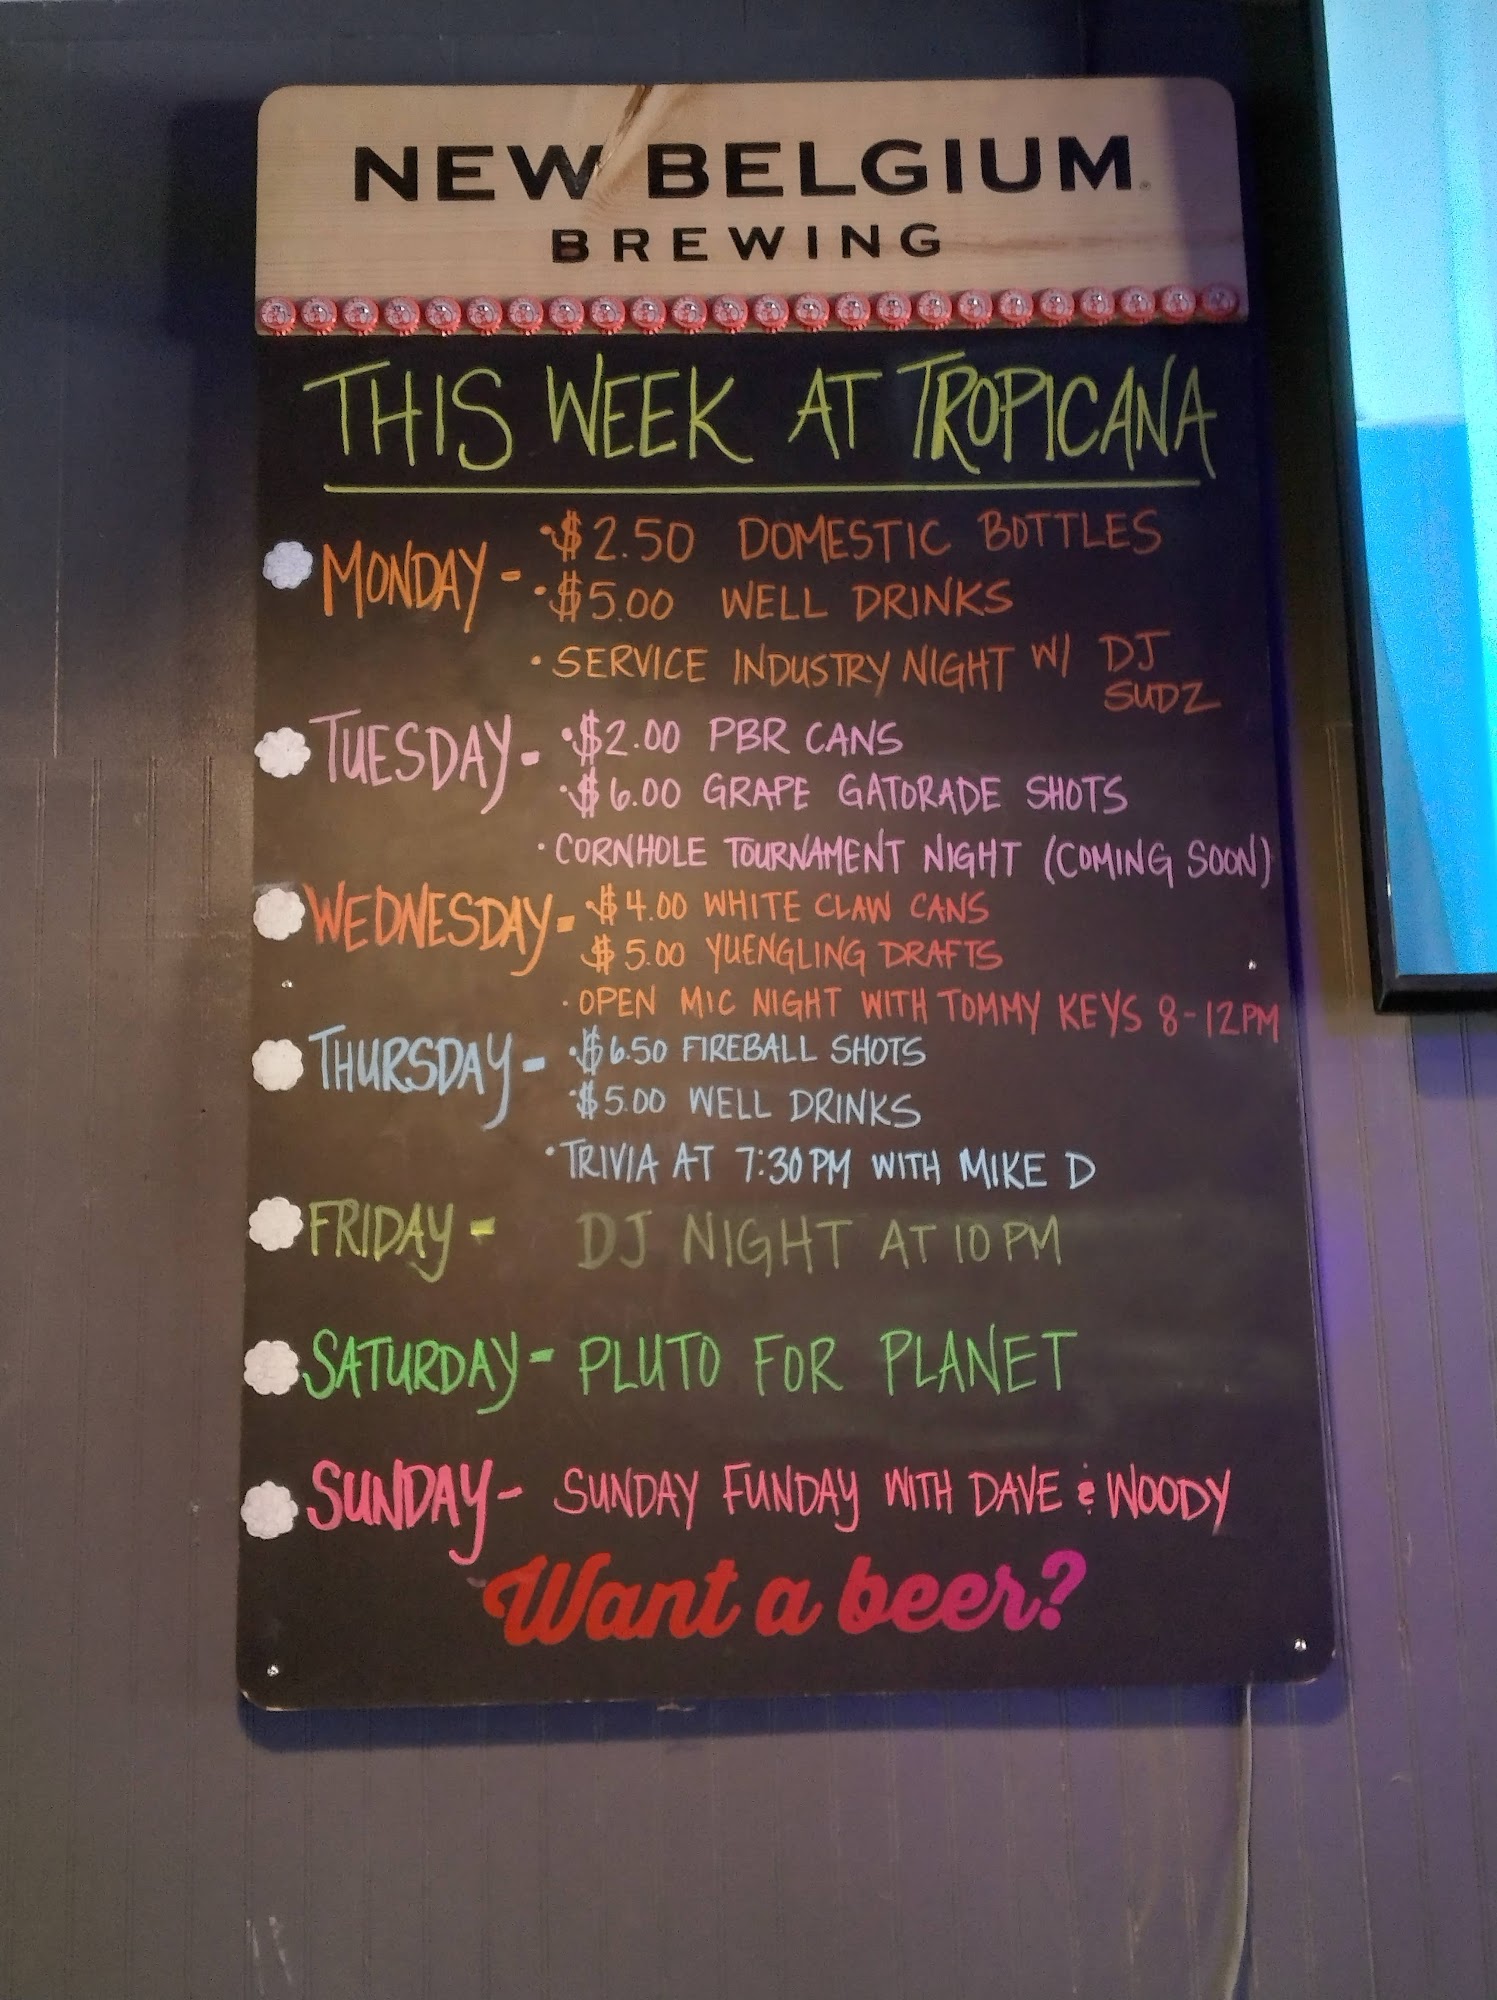 NEW BELGIUM
BREWING
THIS WEEK AT TROPICANA
MONDAY - • $2.50 DOMESTIC BOTTLES
• $5.00 WELL DRINKS
• SERVICE INDUSTRY NIGHT W/ DJ
SUDZ
TUESDAY - • $2.00 PBR CANS
• $6.00 GRAPE GATORADE SHOTS
• CORNHOLE TOURNAMENT NIGHT (COMING SOON)
WEDNESDAY - • $4.00 WHITE CLAW CANS
$5.00 YUENGLING DRAFTS
• OPEN MIC NIGHT WITH TOMMY KEYS 8-12PM
THURSDAY - • $6.50 FIREBALL SHOTS
• $5.00 WELL DRINKS
• TRIVIA AT 7:30PM WITH MIKE D
FRIDAY - DJ NIGHT AT 10PM
SATURDAY - PLUTO FOR PLANET
SUNDAY - SUNDAY FUNDAY WITH DAVE & WOODY
Want a beer?